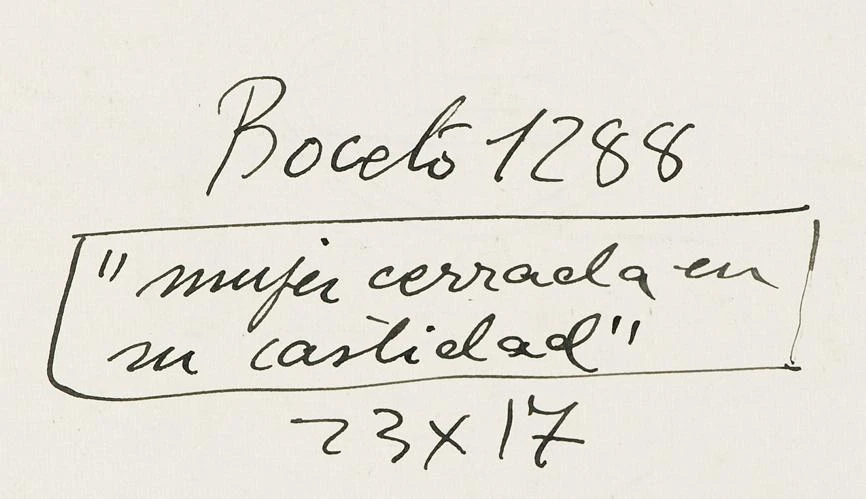 Boceto 1288
"mujer cerrada en
su castidad"
23x17